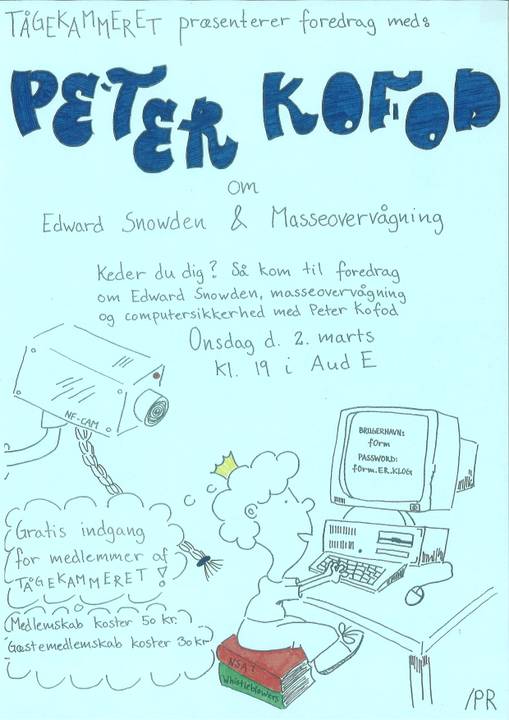 TÅGEKAMMERET præsenterer foredrag med:
PETER KOFOD
om
Edward Snowden & Masseovervågning
Keder du dig? Så kom til foredrag
om Edward Snowden, masseovervågning
og computersikkerhed med Peter Kofod
Onsdag d. 2. marts
Kl. 19 i Aud E
NF-CAM
BRUGERNAVN:
fOrm
PASSWORD:
fOrm.ER.KLOG
Gratis indgang
for medlemmer af
TÅGEKAMMERET!
Medlemskab koster 50 kr.
Gæstemedlemskab koster 30 kr
NSA?
Whistleblowers
/PR